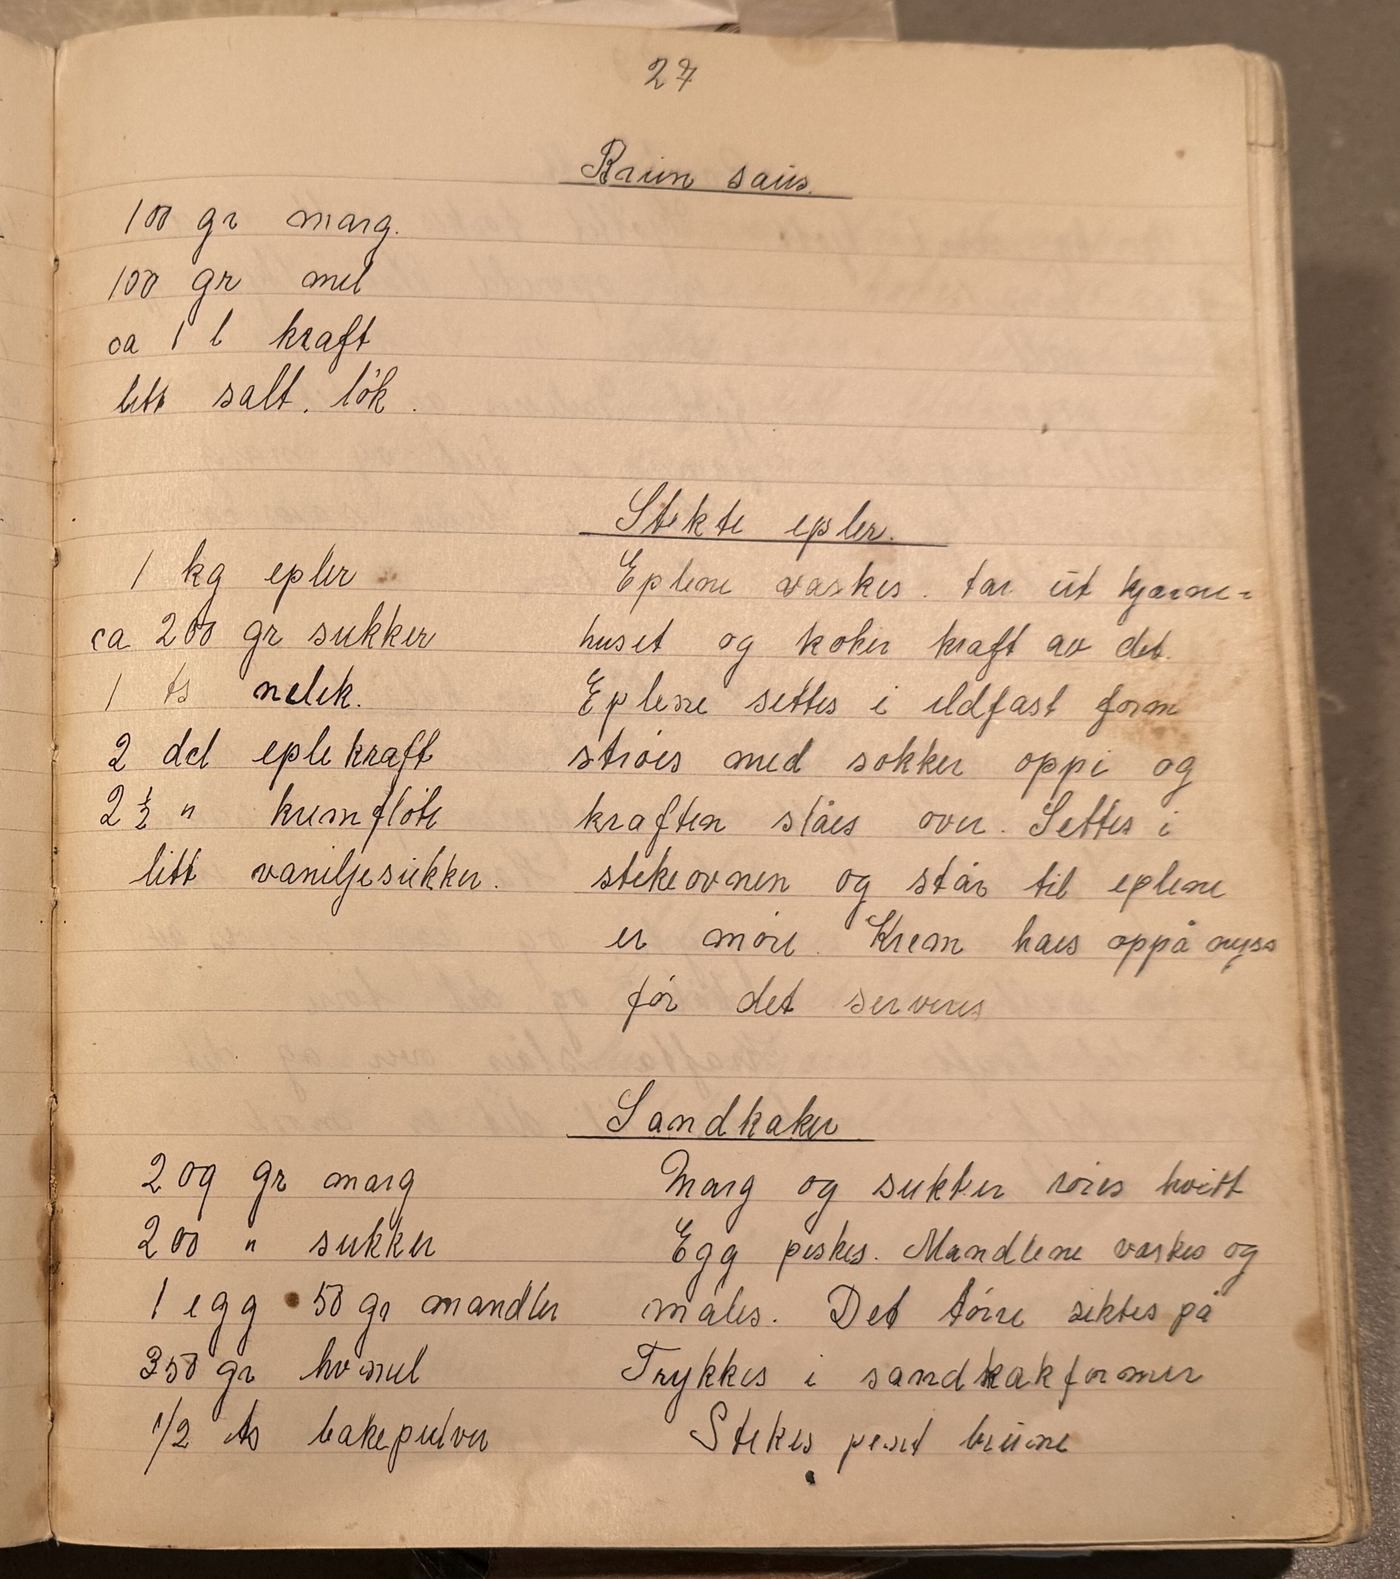 27
Brun saus.
100 gr marg.
100 gr mel
ca 1 l kraft
litt salt, løk.
Stekte epler.
1 kg epler
ca 200 gr sukker
1 ts nelek.
2 del eplekraft
2 1/2 " kremfløte
litt vaniljesukker.
Eplene vaskes. tar ut kjærne-
huset og koker kraft av det.
Eplene settes i ildfast form
strøes med sokker oppi og
kraften slåes over. Settes i
stekeovnen og står til eplene
er møre. Krem haes oppå nyss
før det serveres
Sandkaker
200 gr marg
200 " sukker
1 egg 50 gr mandler
350 gr hv mel
1/2 ts bakepulver
Marg og sukker røres hvitt
Egg piskes. Mandlene vaskes og
males. Det tørre siktes på
Trykkes i sandkakformer
Stekes pent brune